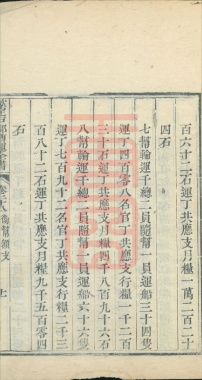 百六十二石運丁共應支月糧一萬二百二十
四石
七幫輪運千總二員隨幫一員運船三十四隻
運丁四百零八名官丁共應支行糧一千二百
三十石運丁共應支月糧四千八百九十六石
八幫輪運千總二員隨幫一員運船六十六隻
運丁七百九十二名官丁共應支行糧二千三
百八十二石運丁共應支月糧九千五百零四
石